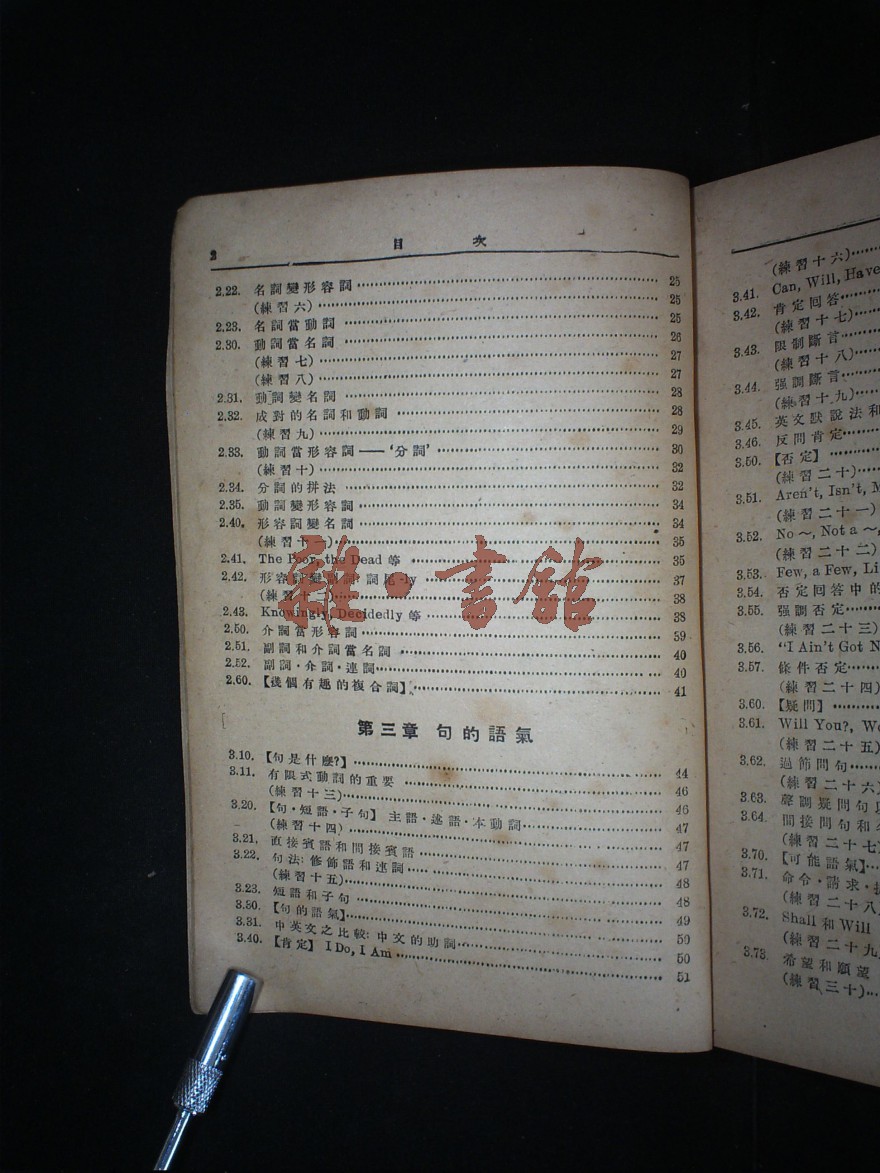 2
目 次
2.22. 名詞變形容詞 25
(練習六) 25
2.23. 名詞當動詞 25
2.30. 動詞當名詞 26
(練習七) 27
(練習八) 27
2.31. 動詞變名詞 28
2.32. 成對的名詞和動詞 28
(練習九) 29
2.33. 動詞當形容詞——‘分詞’ 30
(練習十) 32
2.34. 分詞的拼法 32
2.35. 動詞變形容詞 34
2.40. 形容詞變名詞 34
(練習十一) 35
2.41. The Poor, the Dead 等 35
2.42. 形容詞變副詞 詞尾 -ly 37
(練習十二) 38
2.43. Knowingly, Decidedly 等 38
2.50. 介詞當形容詞 59
2.51. 副詞和介詞當名詞 40
2.52. 副詞·介詞·連詞 40
2.60. 【幾個有趣的複合詞】 41
第三章 句的語氣
3.10. 【句是什麼?】 44
3.11. 有限式動詞的重要 46
(練習十三) 46
3.20. 【句·短語·子句】 主語·述語·本動詞 47
(練習十四) 47
3.21. 直接賓語和間接賓語 47
3.22. 句法: 修飾語和連詞 48
(練習十五) 48
3.23. 短語和子句 49
3.30. 【句的語氣】 50
3.31. 中英文之比較: 中文的助詞 50
3.40. 【肯定】 I Do, I Am 51
(練習十六)
3.41. Can, Will, Have
3.42. 肯定回答
(練習十七)
3.43. 限制斷言
(練習十八)
3.44. 强調斷言
(練習十九)
3.45. 英文默說法和
3.46. 反問肯定
3.50. 【否定】
(練習二十)
3.51. Aren't, Isn't, M
(練習二十一)
3.52. No ~, Not a ~,
(練習二十二)
3.53. Few, a Few, Li
3.54. 否定回答中的
3.55. 强調否定
(練習二十三)
3.56. “I Ain't Got N
3.57. 條件否定
(練習二十四)
3.60. 【疑問】
3.61. Will You?, Wo
(練習二十五)
3.62. 過節問句
(練習二十六)
3.63. 聲調疑問句
3.64. 間接問句和
(練習二十七)
3.70. 【可能語氣】
3.71. 命令·請求·
(練習二十八)
3.72. Shall 和 Will
(練習二十九)
3.73. 希望和願望
(練習三十)
雜·書館